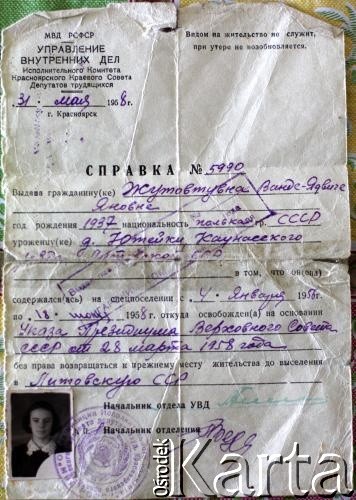 МВД РСФСР
УПРАВЛЕНИЕ
ВНУТРЕННИХ ДЕЛ
Исполнительного Комитета
Красноярского Краевого Совета
Депутатов трудящихся
„31“ мая 1958 г.
г. Красноярск
Видом на жительство не служит,
при утере не возобновляется.
СПРАВКА № 5990
Выдана гражданину(ке) Жутавтувна Ванде-Ядвиге
Яновне
год рождения 1937 национальность полька гр. СССР
уроженцу(ке) д. Каунасского
ССР
в том, что он(она)
содержался(ась) на спецпоселении с „4“ Января 195
по „18“ 1958 г. откуда освобожден(а) на основании
Указа Президиума Верховного Совета
СССР от 28 марта 1958 года
без права возвращаться к прежнему месту жительства до выселения
в Литовскую ССР
Начальник отдела УВД
Начальник отделения
Ośrodek
Karta